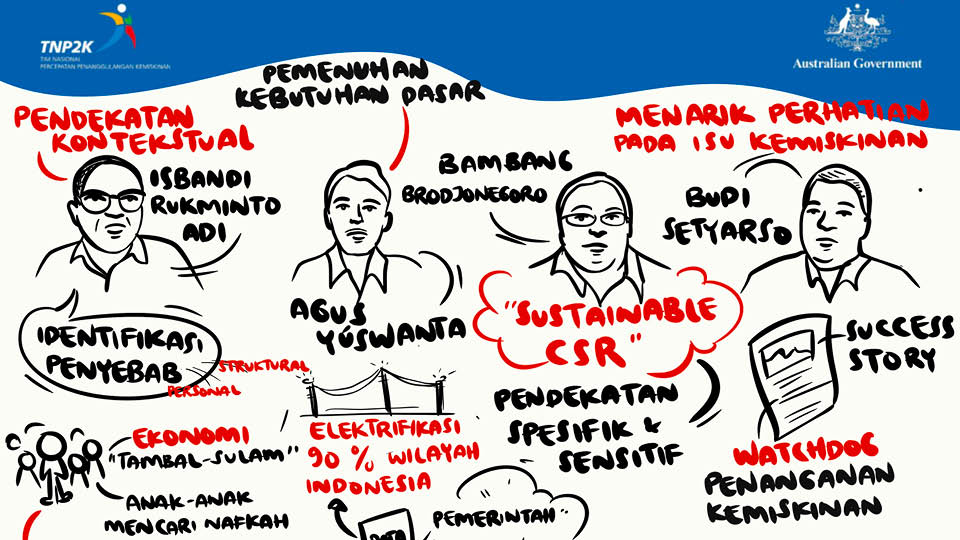 TNP2K
TIM NASIONAL
PERCEPATAN PENANGGULANGAN KEMISKINAN
Australian Government
PENDEKATAN
KONTEKSTUAL
ISBANDI
RUKMINTO
ADI
IDENTIFIKASI
PENYEBAB
STRUKTURAL
PERSONAL
EKONOMI
"TAMBAL-SULAM"
ANAK-ANAK
MENCARI NAFKAH
PEMENUHAN
KEBUTUHAN DASAR
AGUS
YUSWANTA
ELEKTRIFIKASI
90 % WILAYAH
INDONESIA
DATA
PEMERINTAH"
BAMBANG
BRODJONEGORO
"SUSTAINABLE
CSR"
PENDEKATAN
SPESIFIK &
SENSITIF
MENARIK PERHATIAN
PADA ISU KEMISKINAN
BUDI
SETYARSO
SUCCESS
STORY
WATCHDOG
PENANGANAN
KEMISKINAN